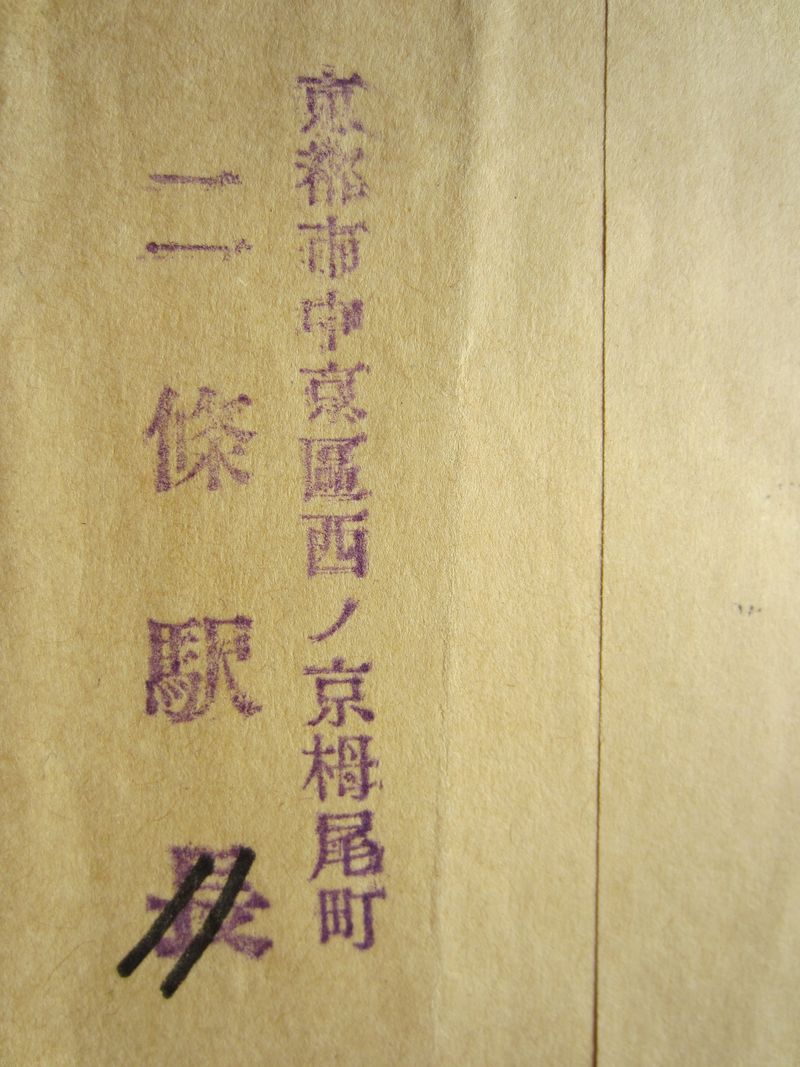 京都市中京區西ノ京栂尾町
二條駅長